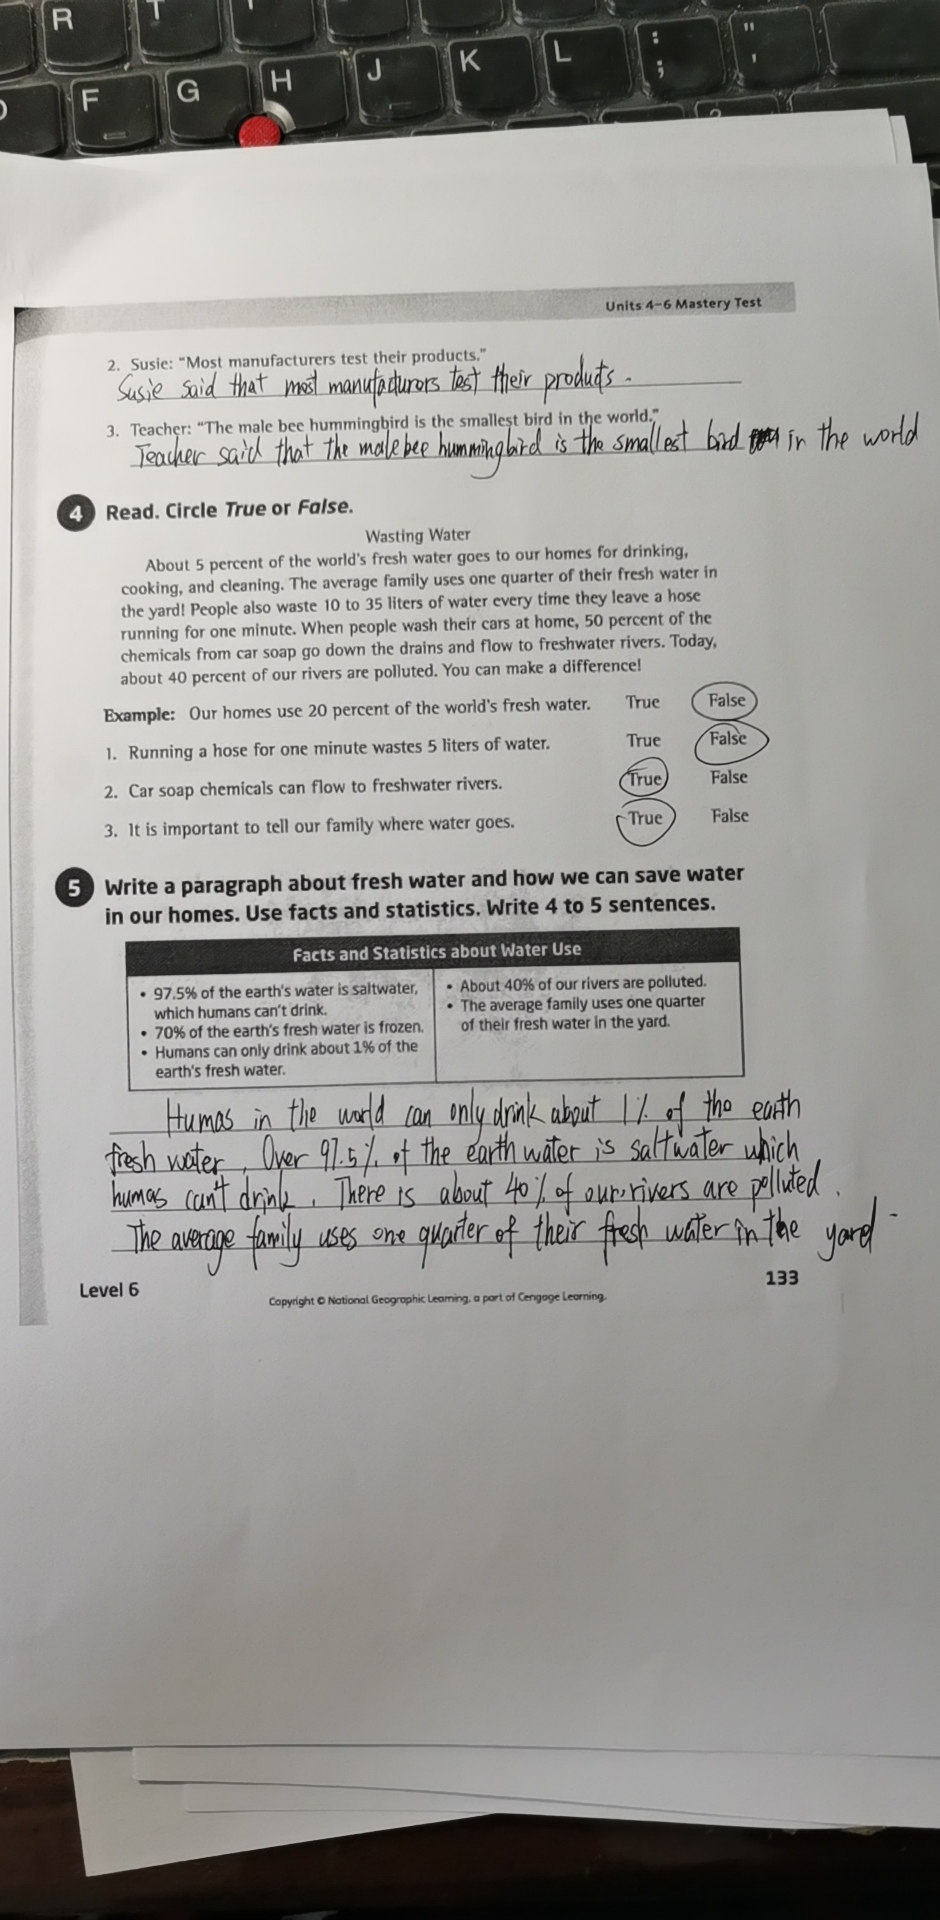 R T
F G H J K L : ; " '
Units 4-6 Mastery Test
2. Susie: "Most manufacturers test their products."
Susie said that most manufacturors test their products.
3. Teacher: "The male bee hummingbird is the smallest bird in the world."
Teacher said that the male bee hummingbird is the smallest bird in the world
4 Read. Circle True or False.
Wasting Water
About 5 percent of the world's fresh water goes to our homes for drinking,
cooking, and cleaning. The average family uses one quarter of their fresh water in
the yard! People also waste 10 to 35 liters of water every time they leave a hose
running for one minute. When people wash their cars at home, 50 percent of the
chemicals from car soap go down the drains and flow to freshwater rivers. Today,
about 40 percent of our rivers are polluted. You can make a difference!
Example: Our homes use 20 percent of the world's fresh water. True False
1. Running a hose for one minute wastes 5 liters of water. True False
2. Car soap chemicals can flow to freshwater rivers. True False
3. It is important to tell our family where water goes. True False
5 Write a paragraph about fresh water and how we can save water
in our homes. Use facts and statistics. Write 4 to 5 sentences.
Facts and Statistics about Water Use
• 97.5% of the earth's water is saltwater,
which humans can't drink.
• 70% of the earth's fresh water is frozen.
• Humans can only drink about 1% of the
earth's fresh water.
• About 40% of our rivers are polluted.
• The average family uses one quarter
of their fresh water in the yard.
Humas in the world can only drink about 1% of the earth
fresh water, Over 97.5% of the earth water is saltwater which
humas can't drink, There is about 40% of our rivers are polluted.
The average family uses one quarter of their fresh water in the yard.
Level 6
133
Copyright © National Geographic Learning, a part of Cengage Learning.